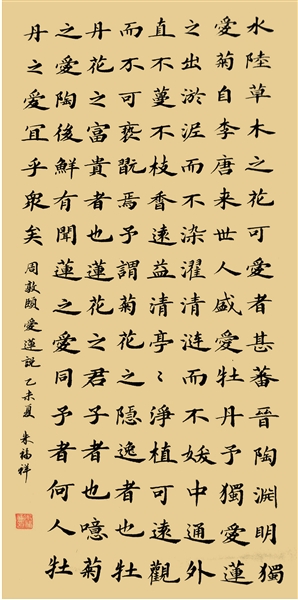 水陸草木之花可愛者甚蕃晉陶淵明獨
愛菊自李唐来世人盛愛牡丹予獨愛蓮
之出淤泥而不染濯清漣而不妖中通外
直不蔓不枝香遠益清亭〻淨植可遠觀
而不可褻翫焉予謂菊花之隱逸者也牡
丹花之富貴者也蓮花之君子者也噫菊
之愛陶後鮮有聞蓮之愛同予者何人牡
丹之愛宜乎衆矣 周敦頤愛蓮説 乙未夏 朱福祥